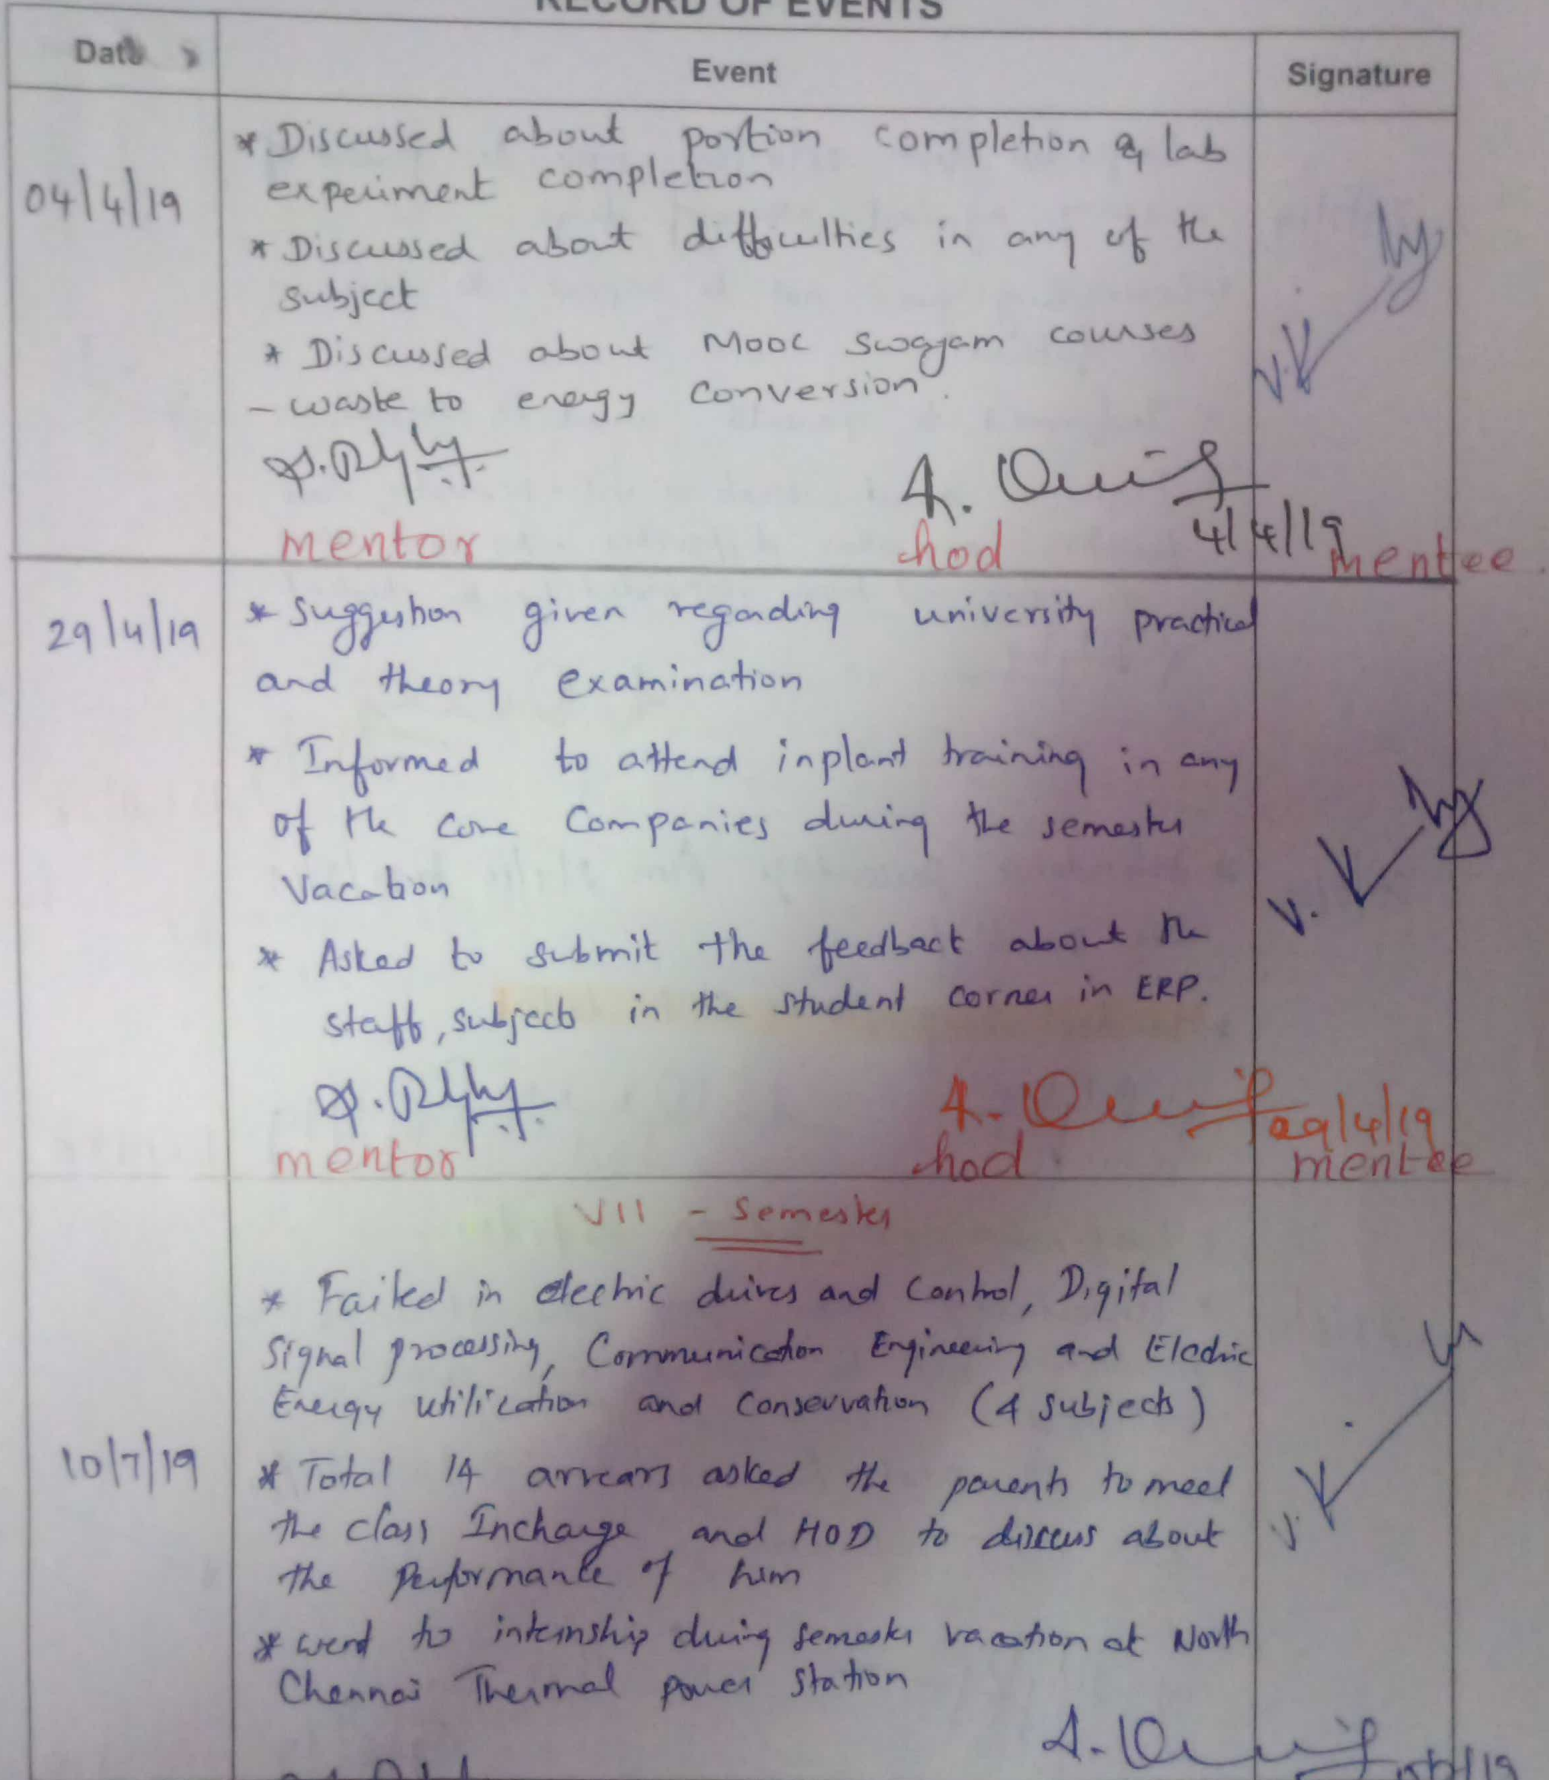 RECORD OF EVENTS
Date
Event
Signature
04/4/19
* Discussed about portion completion & lab
experiment completion
* Discussed about difficulties in any of the
subject
* Discussed about MOOC Swayam courses
- waste to energy conversion.
4/4/19
mentor
hod
mentee.
29/4/19
* Suggestion given regarding university practical
and theory examination
* Informed to attend inplant training in any
of the core Companies during the semester
Vacation
* Asked to submit the feedback about the
staff, subjects in the student corner in ERP.
29/4/19
mentor
hod
mentee
VII - Semester
10/7/19
* Failed in electric drives and Control, Digital
Signal processing, Communication Engineering and Electric
Energy utilization and Conservation (4 subjects)
* Total 14 arrears asked the parents to meet
the class Incharge and HOD to discuss about
the Performance of him
* went to internship during semester vacation at North
Chennai Thermal power station